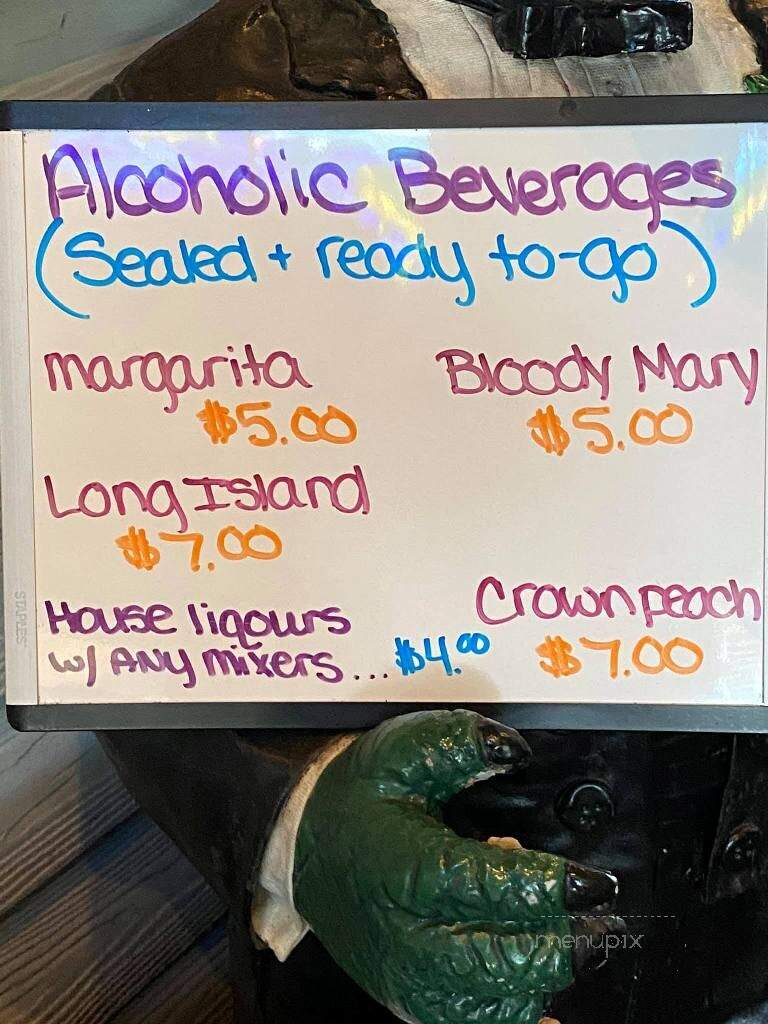 Alcoholic Beverages
(Sealed + ready to-go)
margarita
$5.00
Bloody Mary
$5.00
Long Island
$7.00
House liqours
w/ ANY mixers...$4.00
Crown peach
$7.00
STAPLES
menupix